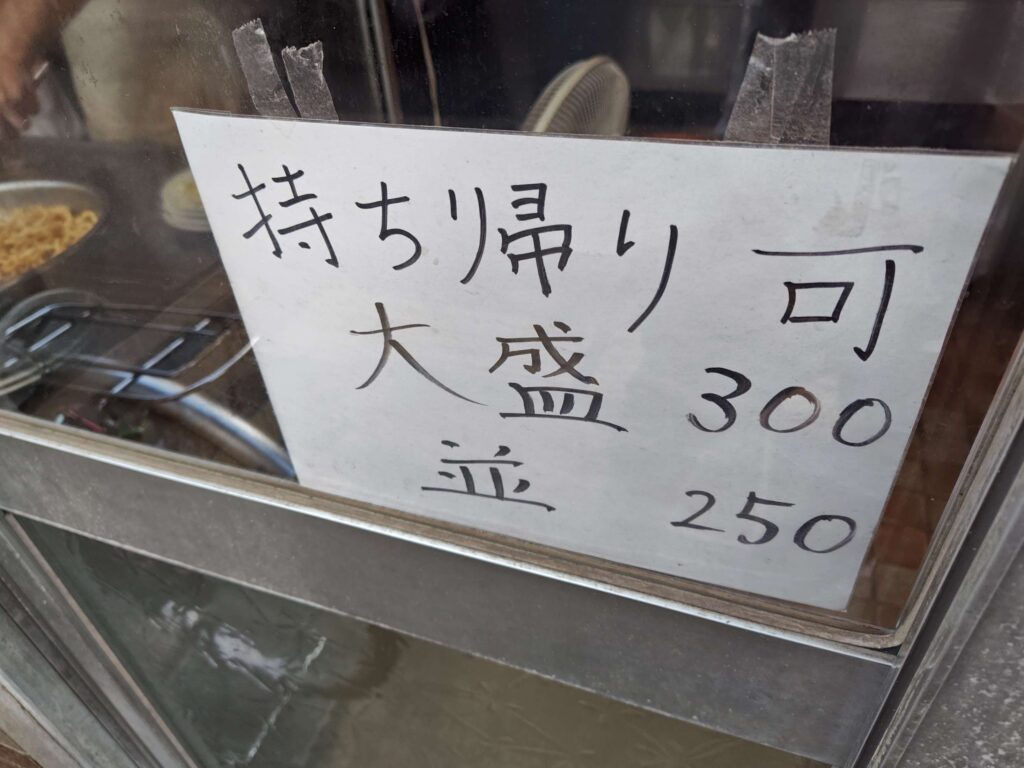 持ち帰り 可
大盛 300
並 250